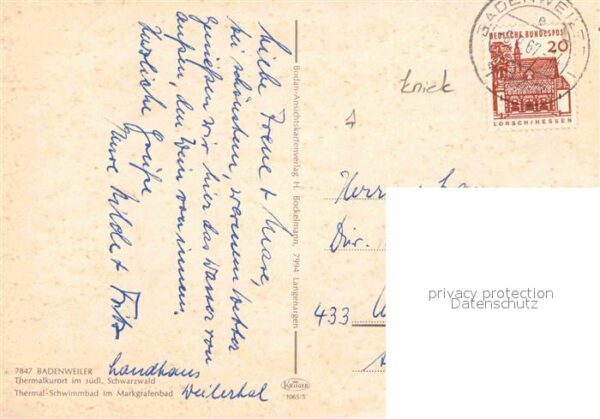 Liebe Irene + Mare,
bei schönstem, warmem Wetter
genießen wir hier das Wasser von
außen, den Wein von innen.
Herzliche Grüße
Eure Hilde + Fritz
Landhaus
Weilertal
7847 BADENWEILER
Thermalkurort im südl. Schwarzwald
Thermal-Schwimmbad im Markgrafenbad
Bodan-Ansichtskartenverlag H. Bockelmann, 7994 Langenargen
KRÜGER
1065/5
BADENWEILER
67
DEUTSCHE BUNDESPOST
20
LORSCH/HESSEN
Knick
Herrn
Dir.
433
privacy protection
Datenschutz